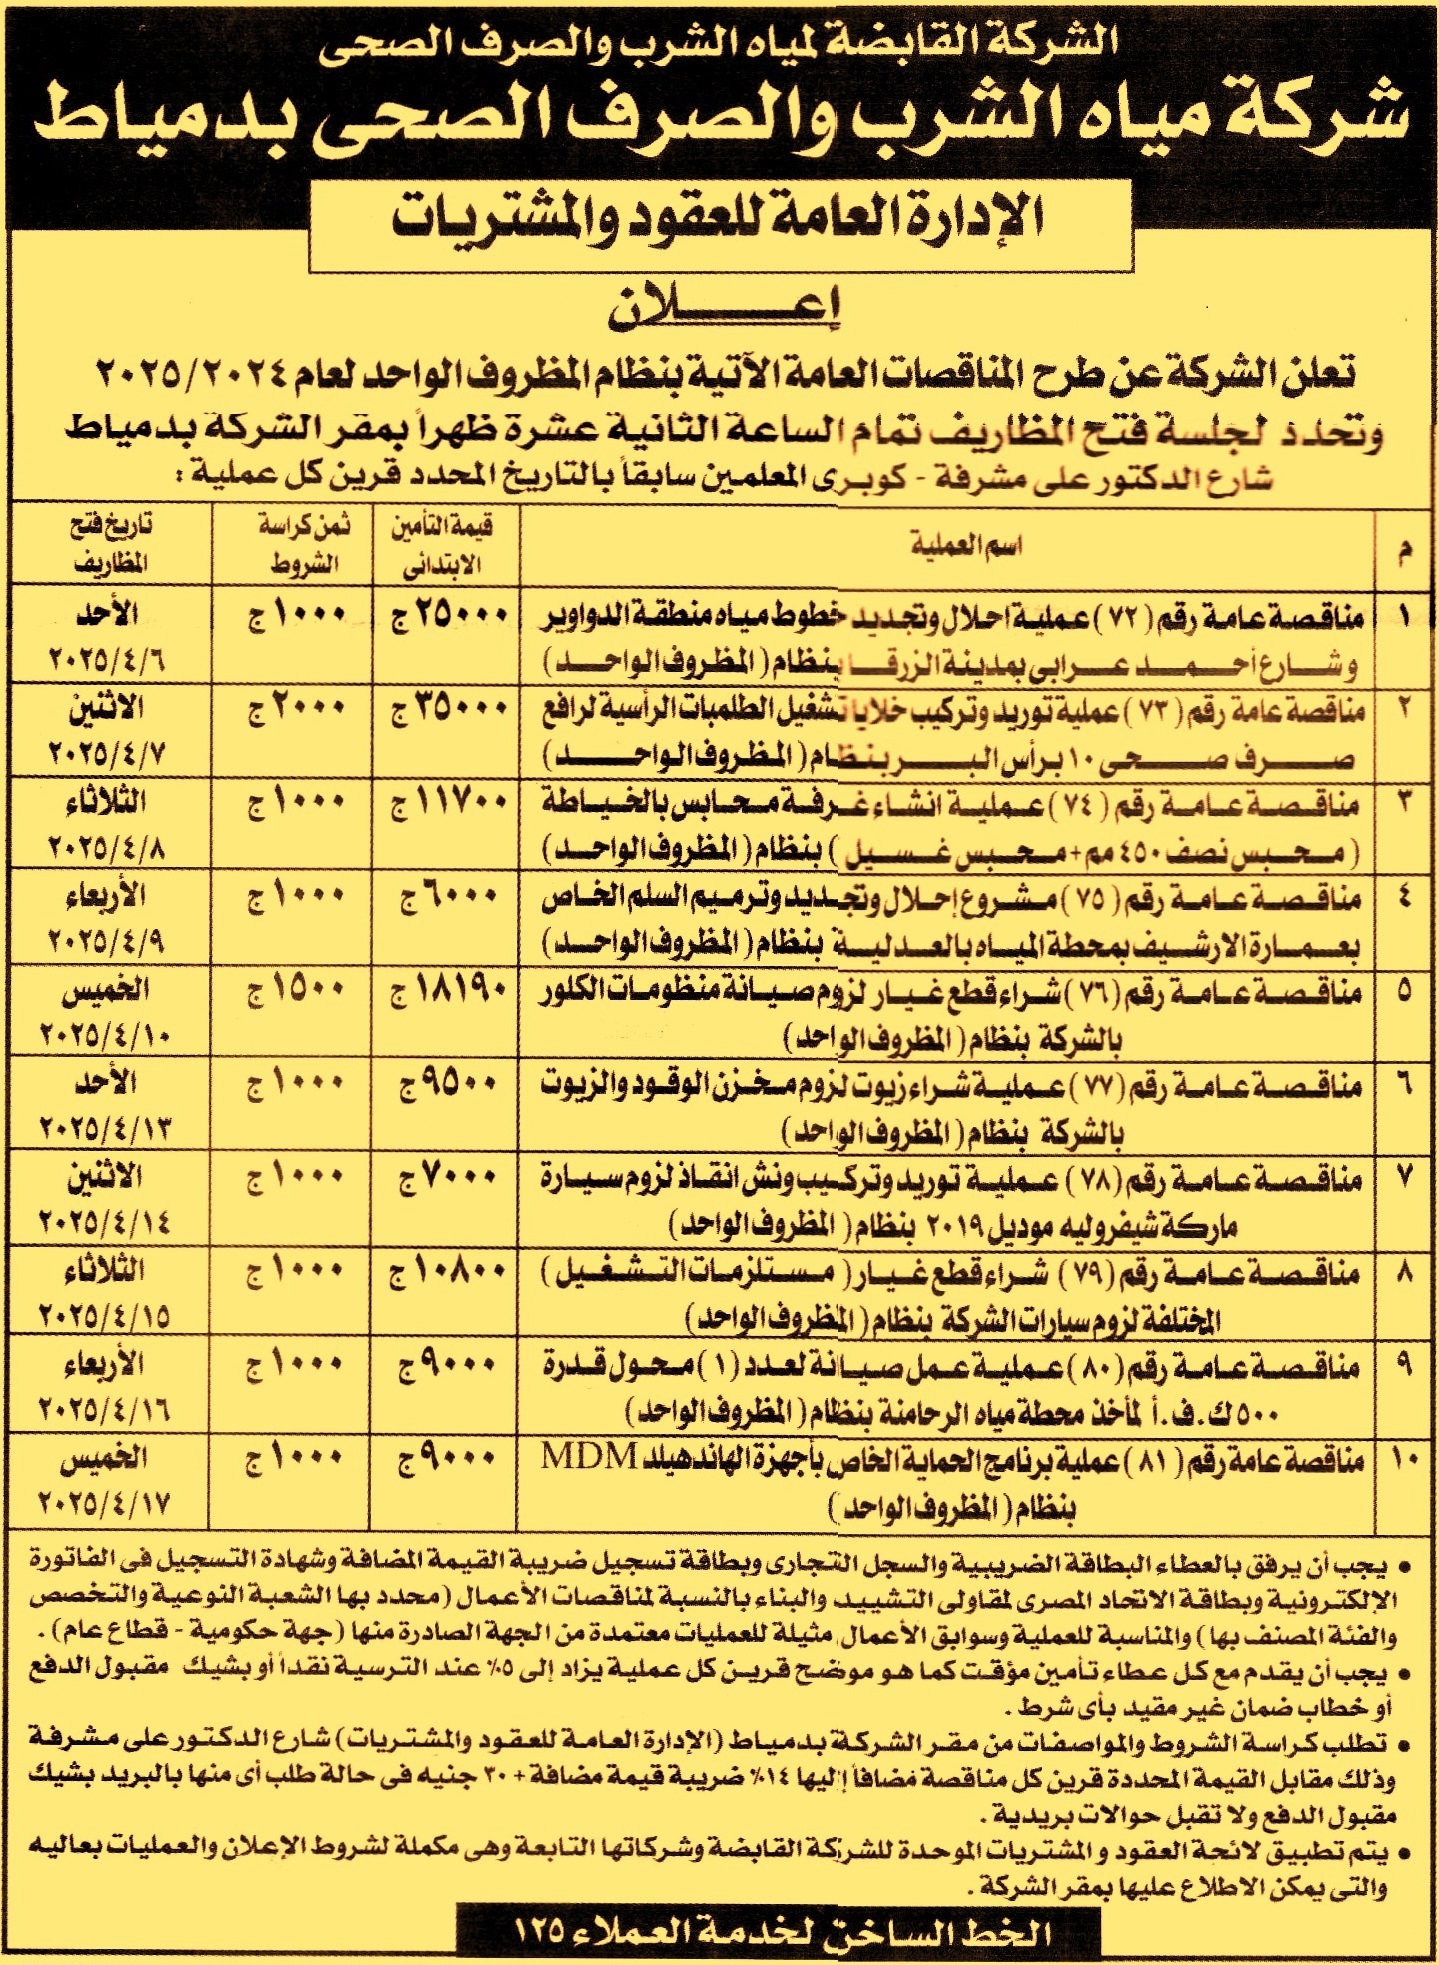 الشركة القابضة لمياه الشرب والصرف الصحى
شركة مياه الشرب والصرف الصحى بدمياط
الإدارة العامة للعقود والمشتريات
إعـــــــــلان
تعلن الشركة عن طرح المناقصات العامة الآتية بنظام المظروف الواحد لعام ٢٠٢٥/٢٠٢٤
وتحدد لجلسة فتح المظاريف تمام الساعة الثانية عشرة ظهراً بمقر الشركة بدمياط
شارع الدكتور على مشرفة - كوبرى المعلمين سابقاً بالتاريخ المحدد قرين كل عملية :
م اسم العملية قيمة التأمين الابتدائى ثمن كراسة الشروط تاريخ فتح المظاريف
١ مناقصة عامة رقم (٧٢) عملية احلال وتجديد خطوط مياه منطقة الدواوير ٢٥٠٠٠ ج ١٠٠٠ ج الأحد
وشارع أحمد عرابى بمدينة الزرقا بنظام (المظروف الواحد) ٢٠٢٥/٤/٦
٢ مناقصة عامة رقم (٧٣) عملية توريد وتركيب خلايا تشغيل الطلمبات الرأسية لرافع ٣٥٠٠٠ ج ٢٠٠٠ ج الاثنين
صرف صحى ١٠ برأس البر بنظام (المظروف الواحد) ٢٠٢٥/٤/٧
٣ مناقصة عامة رقم (٧٤) عملية انشاء غرفة محابس بالخياطة ١١٧٠٠ ج ١٠٠٠ ج الثلاثاء
(محبس نصف ٤٥٠ مم + محبس غسيل) بنظام (المظروف الواحد) ٢٠٢٥/٤/٨
٤ مناقصة عامة رقم (٧٥) مشروع إحلال وتجديد وترميم السلم الخاص ٦٠٠٠ ج ١٠٠٠ ج الأربعاء
بعمارة الارشيف بمحطة المياه بالعدلية بنظام (المظروف الواحد) ٢٠٢٥/٤/٩
٥ مناقصة عامة رقم (٧٦) شراء قطع غيار لزوم صيانة منظومات الكلور ١٨١٩٠ ج ١٥٠٠ ج الخميس
بالشركة بنظام (المظروف الواحد) ٢٠٢٥/٤/١٠
٦ مناقصة عامة رقم (٧٧) عملية شراء زيوت لزوم مخزن الوقود والزيوت ٩٥٠٠ ج ١٠٠٠ ج الأحد
بالشركة بنظام (المظروف الواحد) ٢٠٢٥/٤/١٣
٧ مناقصة عامة رقم (٧٨) عملية توريد وتركيب ونش انقاذ لزوم سيارة ٧٠٠٠ ج ١٠٠٠ ج الاثنين
ماركة شيفروليه موديل ٢٠١٩ بنظام (المظروف الواحد) ٢٠٢٥/٤/١٤
٨ مناقصة عامة رقم (٧٩) شراء قطع غيار (مستلزمات التشغيل) ١٠٨٠٠ ج ١٠٠٠ ج الثلاثاء
المختلفة لزوم سيارات الشركة بنظام (المظروف الواحد) ٢٠٢٥/٤/١٥
٩ مناقصة عامة رقم (٨٠) عملية عمل صيانة لعدد (١) محول قدرة ٩٠٠٠ ج ١٠٠٠ ج الأربعاء
٥٠٠ ك.ف.أ لمأخذ محطة مياه الرحامنة بنظام (المظروف الواحد) ٢٠٢٥/٤/١٦
١٠ مناقصة عامة رقم (٨١) عملية برنامج الحماية الخاص بأجهزة الهاندهيلد MDM ٩٠٠٠ ج ١٠٠٠ ج الخميس
بنظام (المظروف الواحد) ٢٠٢٥/٤/١٧
• يجب أن يرفق بالعطاء البطاقة الضريبية والسجل التجارى وبطاقة تسجيل ضريبة القيمة المضافة وشهادة التسجيل فى الفاتورة
الإلكترونية وبطاقة الاتحاد المصرى لمقاولى التشييد والبناء بالنسبة لمناقصات الأعمال (محدد بها الشعبة النوعية والتخصص
والفئة المصنف بها) والمناسبة للعملية وسوابق الأعمال مثيلة للعمليات معتمدة من الجهة الصادرة منها (جهة حكومية - قطاع عام) .
• يجب أن يقدم مع كل عطاء تأمين مؤقت كما هو موضح قرين كل عملية يزاد إلى ٥٪ عند الترسية نقداً أو بشيك مقبول الدفع
أو خطاب ضمان غير مقيد بأى شرط .
• تطلب كراسة الشروط والمواصفات من مقر الشركة بدمياط (الإدارة العامة للعقود والمشتريات) شارع الدكتور على مشرفة
وذلك مقابل القيمة المحددة قرين كل مناقصة مضافاً إليها ١٤٪ ضريبة قيمة مضافة + ٣٠ جنيه فى حالة طلب أى منها بالبريد بشيك
مقبول الدفع ولا تقبل حوالات بريدية .
• يتم تطبيق لائحة العقود و المشتريات الموحدة للشركة القابضة وشركاتها التابعة وهى مكملة لشروط الإعلان والعمليات بعاليه
والتى يمكن الاطلاع عليها بمقر الشركة .
الخط الساخن لخدمة العملاء ١٢٥